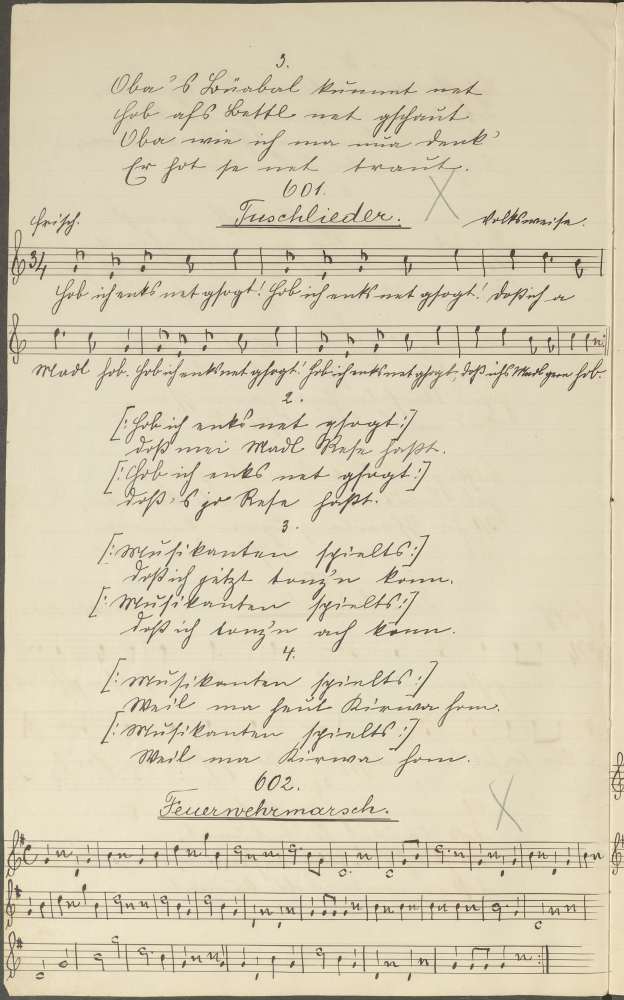 3.
Oba 's Büabal kummt net
Hob afs Bettl net gschaut
Oba wie ich ma nua denk'
Er hot se net traut.
601.
Tuschlieder.
Frisch. Volksweise.
3/4
Hob ich enks net gsogt! Hob ich enks net gsogt! Doß ich a
Madl hob. Hob ich enks net gsogt! Hob ich enks net gsogt, doß ichs Madl gern hob.
2.
[: Hob ich enks net gsogt :]
doß mei Madl Rese haßt.
[: Hob ich enks net gsogt :]
doß 's jo Rese haßt.
3.
[: Musikanten spielts :]
doß ich jetzt tonz'n konn.
[: Musikanten spielts :]
doß ich tonz'n ach konn.
4.
[: Musikanten spielts :]
Weil ma heut Kirwa hom.
[: Musikanten spielts :]
Weil ma Kirwa hom.
602.
Feuerwehrmarsch.